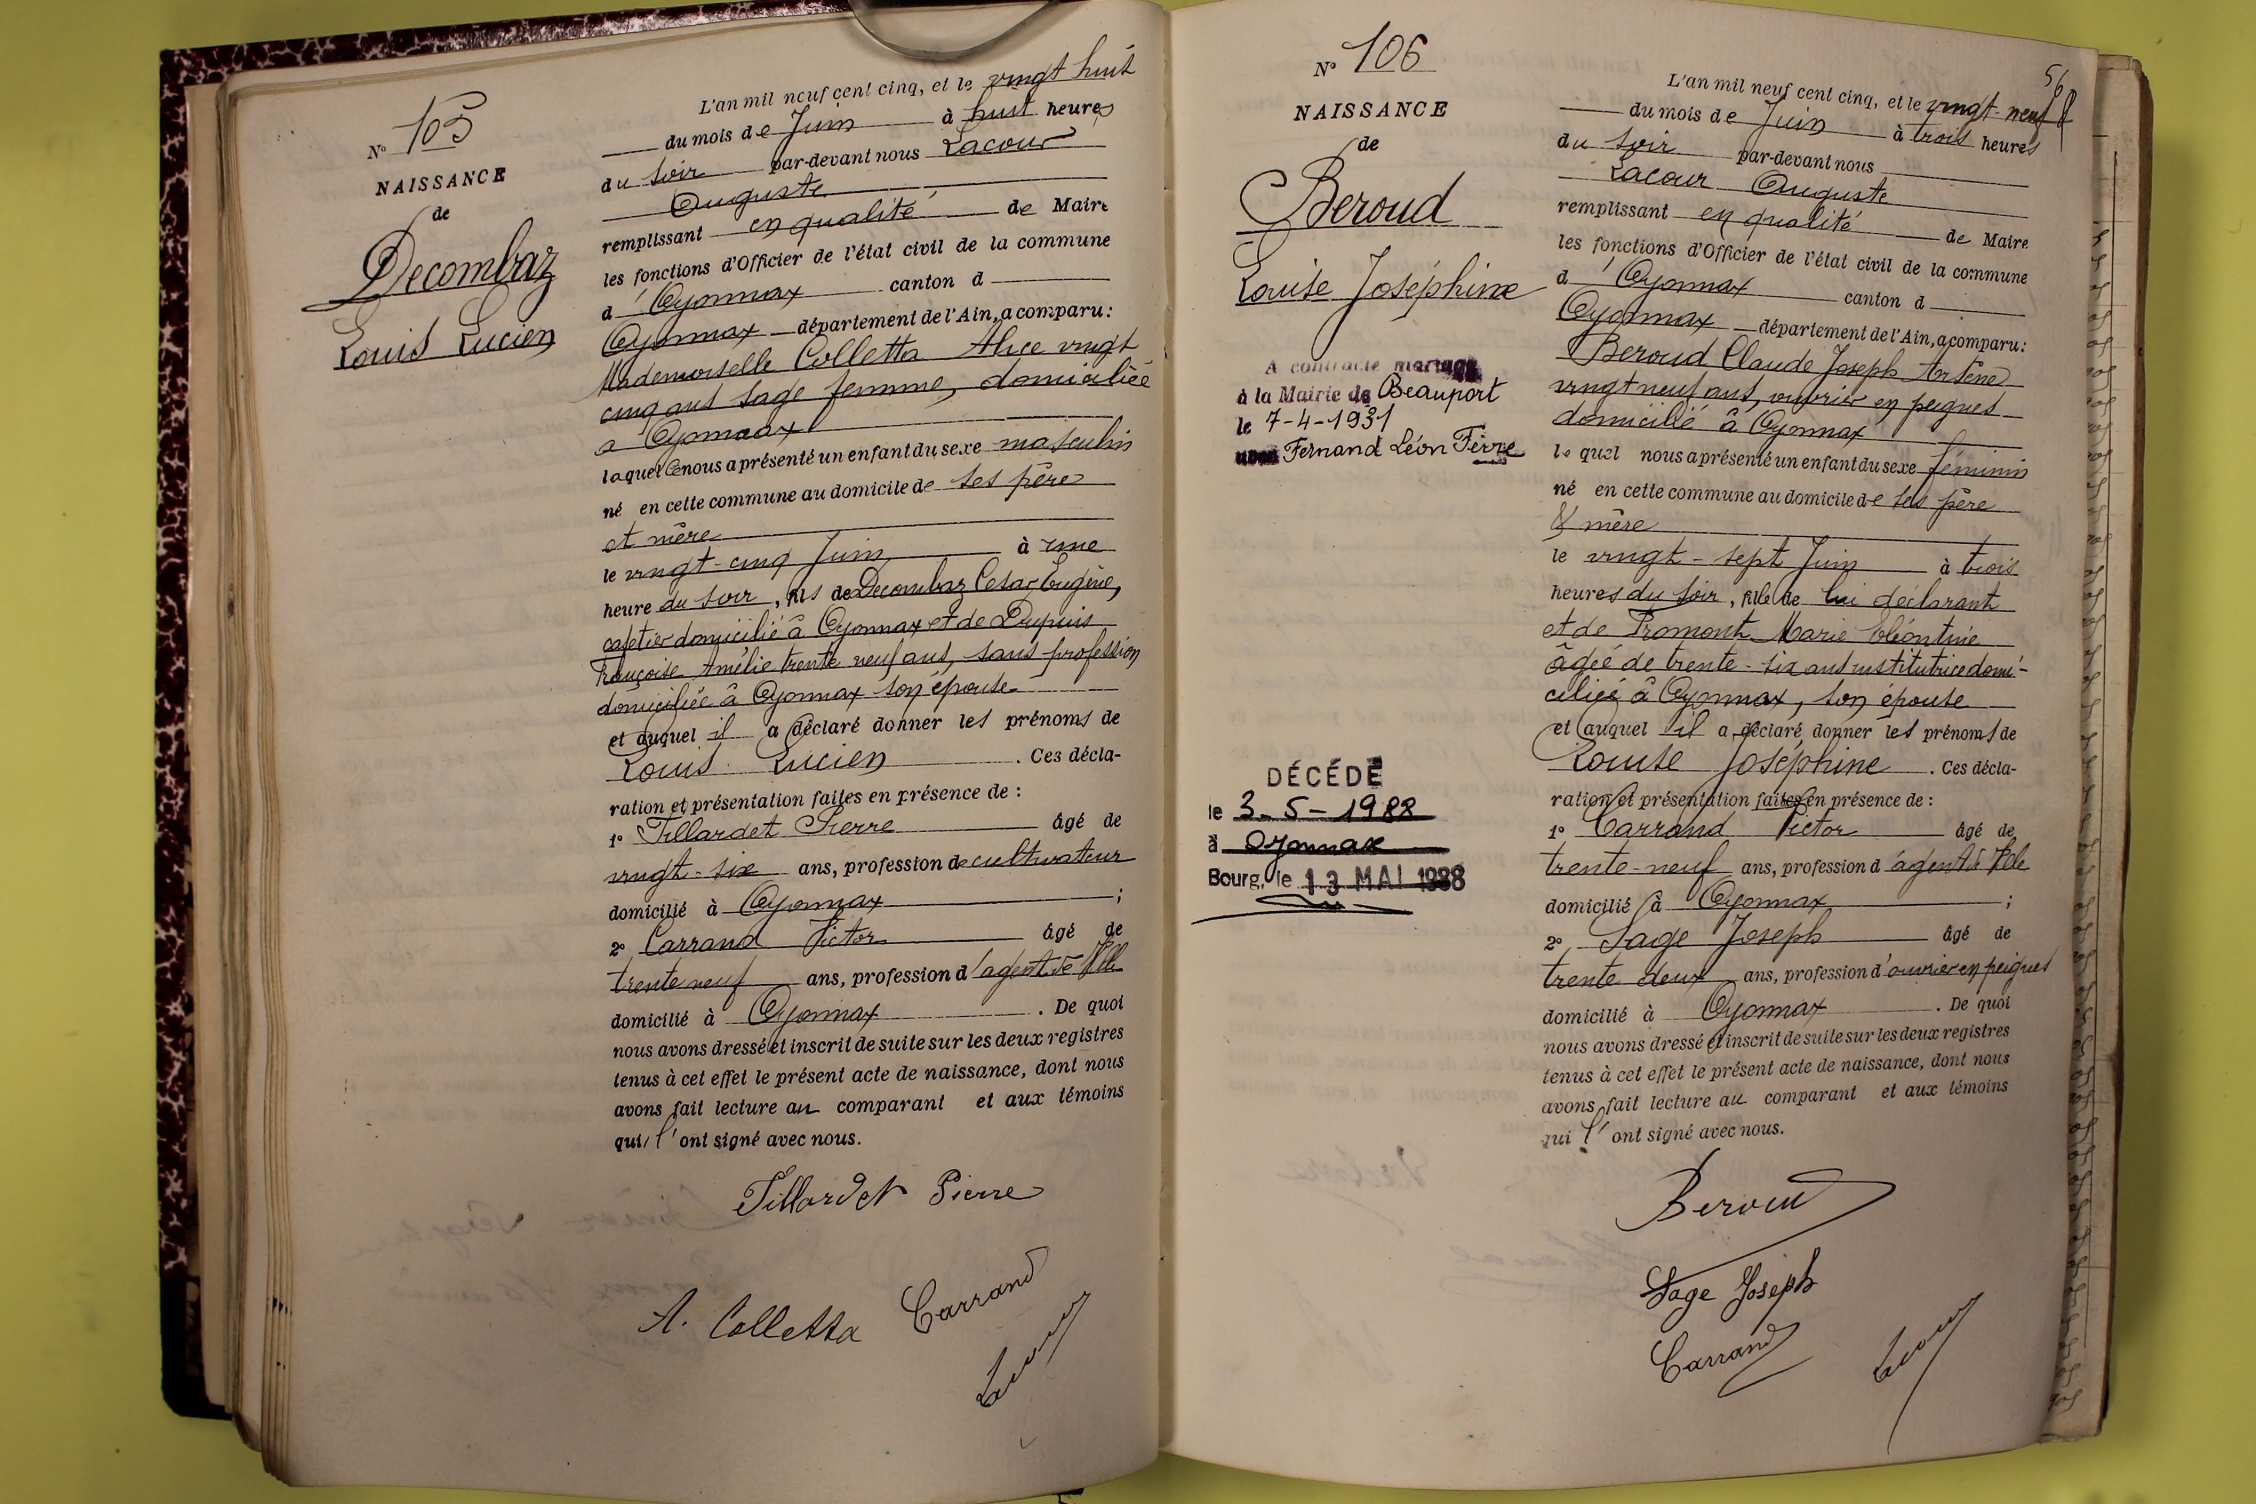 N° 105
NAISSANCE
de
Decombaz
Louis Lucien
L'an mil neuf cent cinq, et le vingt huit
du mois de Juin à huit heures
du soir par-devant nous Lacour
Auguste
remplissant en qualité de Maire
les fonctions d'Officier de l'état civil de la commune
d' Oyonnax canton d
Oyonnax département de l'Ain, a comparu :
Mademoiselle Colletta Alice vingt
cinq ans sage femme, domiciliée
a Oyonnax
laquelle nous a présenté un enfant du sexe masculin
né en cette commune au domicile de ses père
et mère
le vingt-cinq Juin à une
heure du soir, fils de Decombaz Cesar Eugène,
cafetier domicilié à Oyonnax et de Dupuis
Françoise Amélie trente neuf ans, sans profession
domiciliée à Oyonnax son épouse
et auquel il a déclaré donner les prénoms de
Louis Lucien . Ces décla-
ration et présentation faites en présence de :
1° Tillardet Pierre âgé de
vingt-six ans, profession de cultivateur
domicilié à Oyonnax ;
2° Carrand Victor âgé de
trente neuf ans, profession d'agent de Pole
domicilié à Oyonnax . De quoi
nous avons dressé et inscrit de suite sur les deux registres
tenus à cet effet le présent acte de naissance, dont nous
avons fait lecture au comparant et aux témoins
qui l'ont signé avec nous.
Tillardet Pierre
A. Colletta Carrand
Lacour
56
N° 106
NAISSANCE
de
Beroud
Louise Joséphine
A contracté mariage
à la Mairie de Beauport
le 7-4-1931
avec Fernand Léon Fèvre
DÉCÉDÉ
le 3-5-1988
à Oyonnax
Bourg, le 13 MAI 1988
L'an mil neuf cent cinq, et le vingt-neuf
du mois de Juin à trois heures
du soir par-devant nous
Lacour Auguste
remplissant en qualité de Maire
les fonctions d'Officier de l'état civil de la commune
d' Oyonnax canton d
Oyonnax département de l'Ain, a comparu :
Beroud Claude Joseph Arsène
vingt neuf ans, ouvrier en peignes
domicilié à Oyonnax
lequel nous a présenté un enfant du sexe féminin
né en cette commune au domicile de ses père
& mère
le vingt-sept Juin à trois
heures du soir, fille de lui déclarant
et de Fromont Marie Cléontine
âgée de trente-six ans institutrice domi-
ciliée à Oyonnax, son epouse
et auquel il a déclaré donner les prénoms de
Louise Joséphine . Ces décla-
ration et présentation faites en présence de :
1° Carrand Victor âgé de
trente-neuf ans, profession d'agent de Pole
domicilié à Oyonnax ;
2° Sage Joseph âgé de
trente deux ans, profession d'ouvrier en peignes
domicilié à Oyonnax . De quoi
nous avons dressé et inscrit de suite sur les deux registres
tenus à cet effet le présent acte de naissance, dont nous
avons fait lecture au comparant et aux témoins
qui l'ont signé avec nous.
Beroud
Sage Joseph
Carrand Lacour